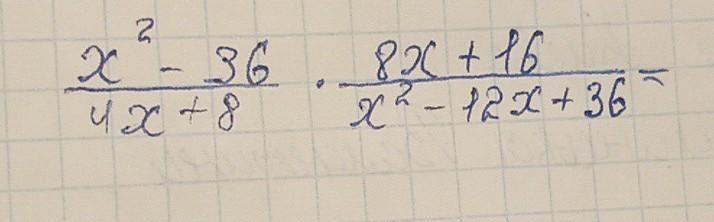 x² - 36 / 4x + 8 · 8x + 16 / x² - 12x + 36 =